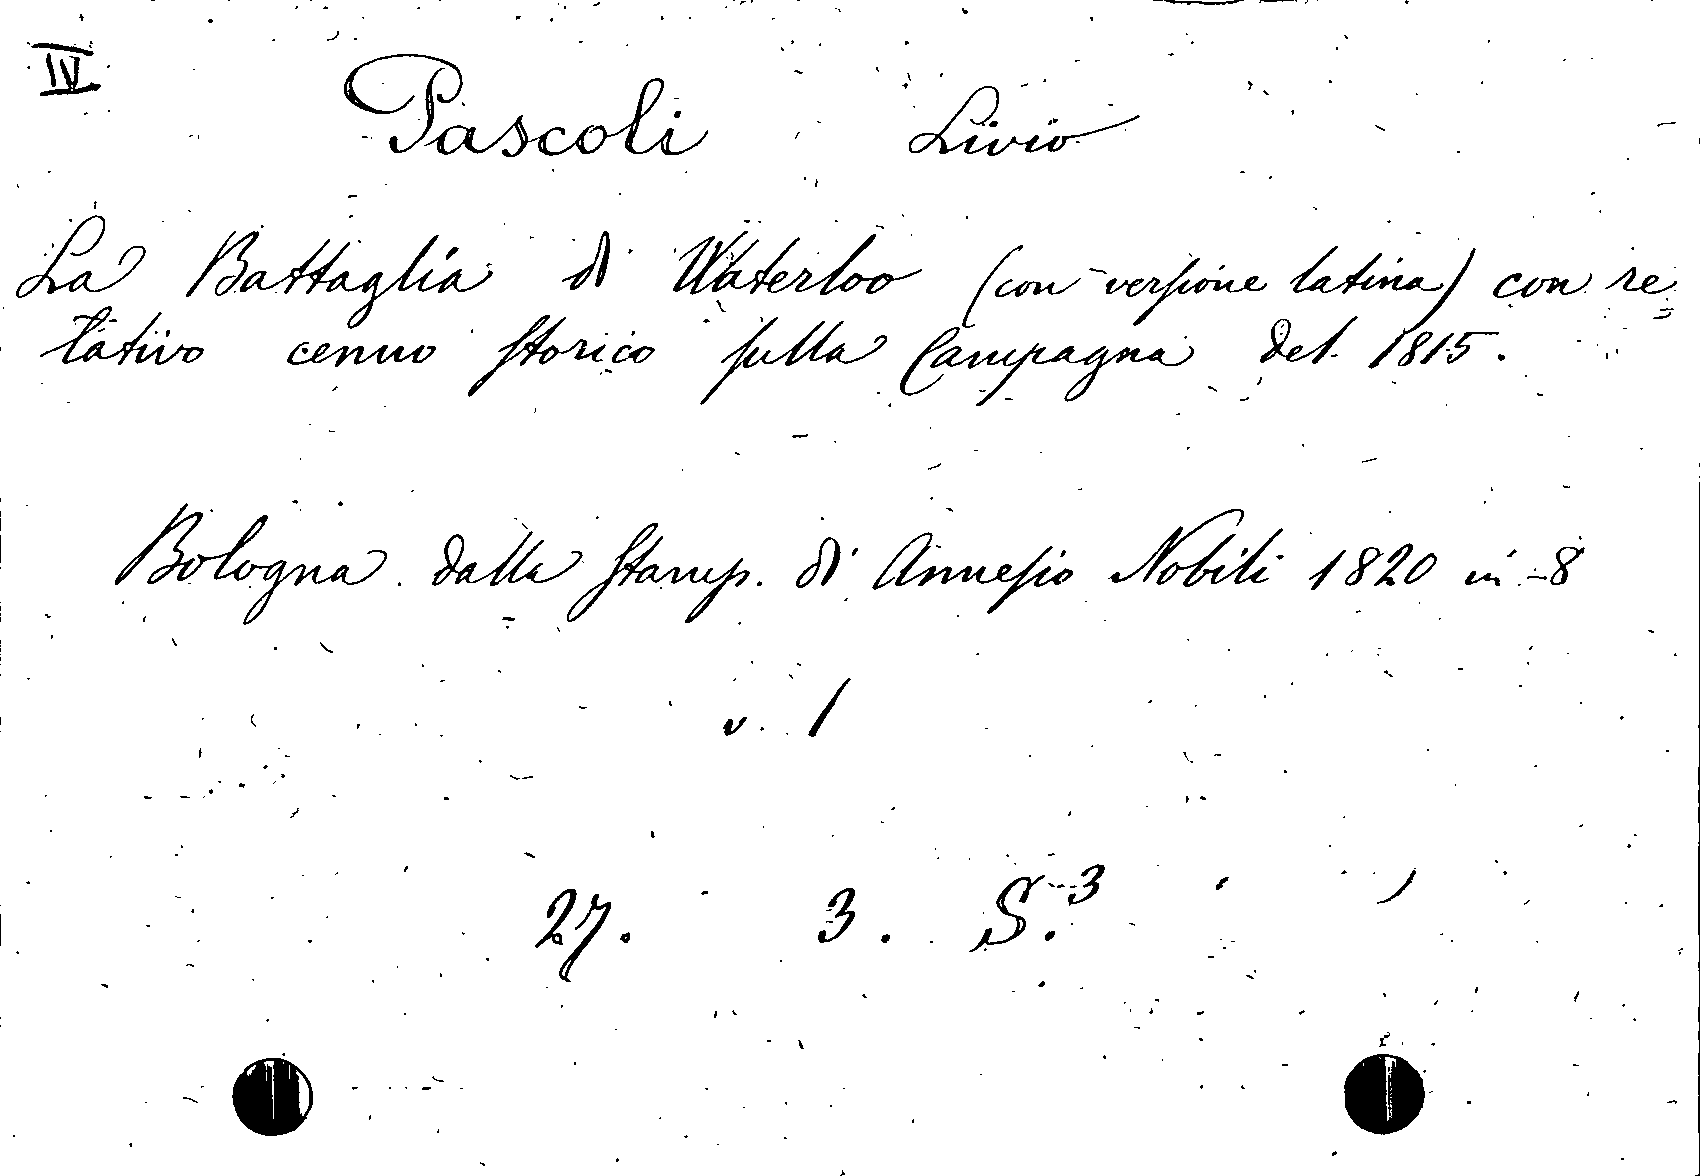 IV
Pascoli Livio
La Battaglia di Waterloo (con versione latina) con re=
lativo cenno storico sulla Campagna del 1815.
Bologna dalla Stamp. di Annesio Nobili 1820 in-8
v. 1
27. 3. S.3